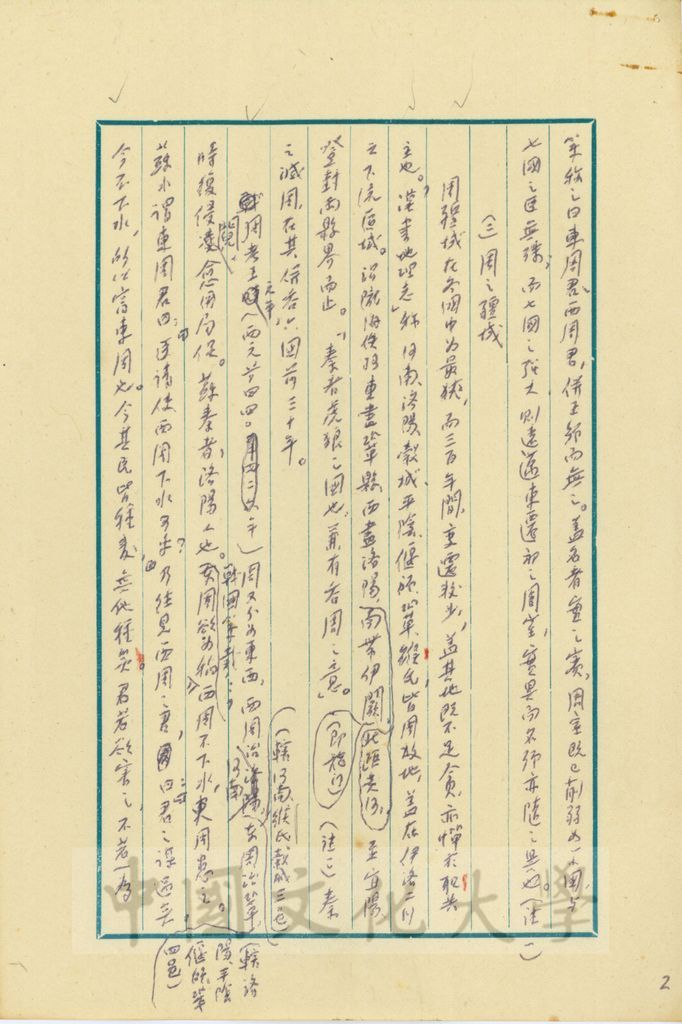 策称之曰東周君、西周君，併王号而無之。蓋名者實之賓，周室既已削弱如小國，与
七國之臣無殊，而七國之強大則遠邁東遷初之周室，實異而名号亦隨之異也。(注一)
(三) 周之疆域
周疆域在各國中为最狹，而三百年間，重遷較少，蓋其地既不足貪，亦憚於
主也。漢書地理志称河南、洛陽、穀城、平陰、偃師、鞏、緱氏皆周故地，蓋在伊洛二川
之下流區域。沿隴海铁路東盡鞏縣西盡洛陽，南帶伊闕，北距黃河，並宜陽
登封兩縣界而止。「秦者虎狼之國也，兼有吞周之意」。(即龍門)(注二) 秦
之滅周，在其併吞六國前三十年。
(轄河南、緱氏、穀城三邑)
周考王元年，(西元前四四〇年) 周又分为東西，西周治河南，東周治鞏(轄洛
陽平陰
偃師鞏
四邑)
時復侵凌，愈用局促。蘇秦者，洛陽人也。東周欲为稻，西周不下水，東周患之。
韓國策封
蘇水謂東周君曰：「臣請使西周下水可乎？」乃往見西周之君，曰：「君之謀過矣
今不下水，所以富東周也。今其民皆種麥，無他種矣。君若欲害之，不若一为
中國文化大學
2